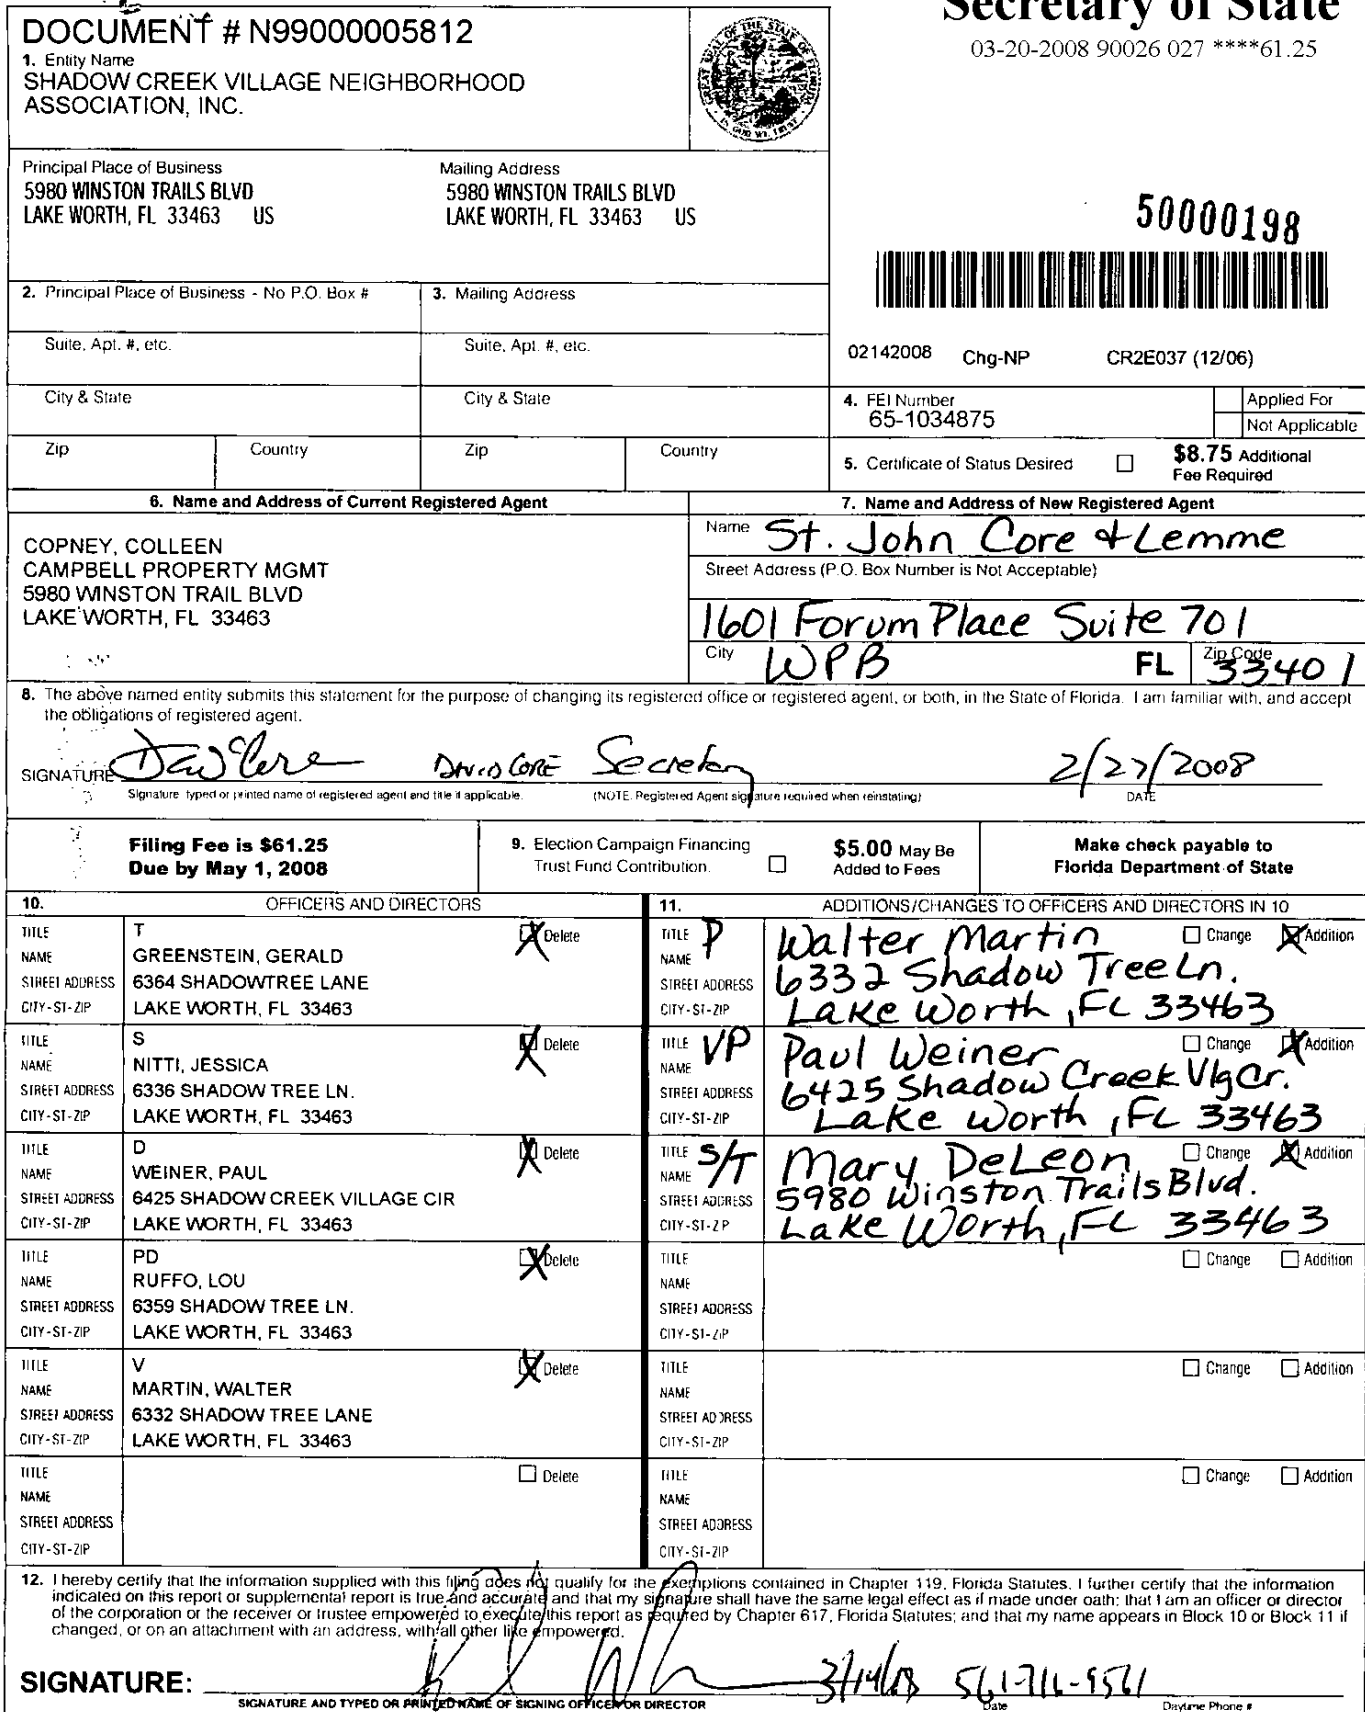 Secretary of State
03-20-2008 90026 027 ****61.25
DOCUMENT # N99000005812
1. Entity Name
SHADOW CREEK VILLAGE NEIGHBORHOOD
ASSOCIATION, INC.
Principal Place of Business
5980 WINSTON TRAILS BLVD
LAKE WORTH, FL 33463 US
Mailing Address
5980 WINSTON TRAILS BLVD
LAKE WORTH, FL 33463 US
50000198
2. Principal Place of Business - No P.O. Box #
3. Mailing Address
Suite, Apt. #, etc.
Suite, Apt. #, etc.
02142008 Chg-NP CR2E037 (12/06)
City & State
City & State
4. FEI Number
65-1034875
Applied For
Not Applicable
Zip
Country
Zip
Country
5. Certificate of Status Desired
$8.75 Additional
Fee Required
6. Name and Address of Current Registered Agent
7. Name and Address of New Registered Agent
COPNEY, COLLEEN
CAMPBELL PROPERTY MGMT
5980 WINSTON TRAIL BLVD
LAKE WORTH, FL 33463
Name St. John Core & Lemme
Street Address (P.O. Box Number is Not Acceptable)
1601 Forum Place Suite 701
City WPB FL Zip Code 33401
8. The above named entity submits this statement for the purpose of changing its registered office or registered agent, or both, in the State of Florida. I am familiar with, and accept
the obligations of registered agent.
SIGNATURE David Core DAVID CORE Secretary 2/27/2008
Signature typed or printed name of registered agent and title if applicable. (NOTE. Registered Agent signature required when reinstating) DATE
Filing Fee is $61.25
Due by May 1, 2008
9. Election Campaign Financing
Trust Fund Contribution.
$5.00 May Be
Added to Fees
Make check payable to
Florida Department of State
10. OFFICERS AND DIRECTORS
11. ADDITIONS/CHANGES TO OFFICERS AND DIRECTORS IN 10
TITLE T Delete
NAME GREENSTEIN, GERALD
STREET ADDRESS 6364 SHADOWTREE LANE
CITY-ST-ZIP LAKE WORTH, FL 33463
TITLE P Walter Martin Change Addition
NAME
STREET ADDRESS 6332 Shadow Tree Ln.
CITY-ST-ZIP Lake Worth, FL 33463
TITLE S Delete
NAME NITTI, JESSICA
STREET ADDRESS 6336 SHADOW TREE LN.
CITY-ST-ZIP LAKE WORTH, FL 33463
TITLE VP Paul Weiner Change Addition
NAME
STREET ADDRESS 6425 Shadow Creek Vlg Cr.
CITY-ST-ZIP Lake Worth, FL 33463
TITLE D Delete
NAME WEINER, PAUL
STREET ADDRESS 6425 SHADOW CREEK VILLAGE CIR
CITY-ST-ZIP LAKE WORTH, FL 33463
TITLE S/T Mary DeLeon Change Addition
NAME
STREET ADDRESS 5980 Winston Trails Blvd.
CITY-ST-ZIP Lake Worth, FL 33463
TITLE PD Delete
NAME RUFFO, LOU
STREET ADDRESS 6359 SHADOW TREE LN.
CITY-ST-ZIP LAKE WORTH, FL 33463
TITLE Change Addition
NAME
STREET ADDRESS
CITY-ST-ZIP
TITLE V Delete
NAME MARTIN, WALTER
STREET ADDRESS 6332 SHADOW TREE LANE
CITY-ST-ZIP LAKE WORTH, FL 33463
TITLE Change Addition
NAME
STREET ADDRESS
CITY-ST-ZIP
TITLE Delete
NAME
STREET ADDRESS
CITY-ST-ZIP
TITLE Change Addition
NAME
STREET ADDRESS
CITY-ST-ZIP
12. I hereby certify that the information supplied with this filing does not qualify for the exemptions contained in Chapter 119, Florida Statutes. I further certify that the information
indicated on this report or supplemental report is true and accurate and that my signature shall have the same legal effect as if made under oath; that I am an officer or director
of the corporation or the receiver or trustee empowered to execute this report as required by Chapter 617, Florida Statutes; and that my name appears in Block 10 or Block 11 if
changed, or on an attachment with an address, with all other like empowered.
SIGNATURE: 3/14/08 561-716-9561
SIGNATURE AND TYPED OR PRINTED NAME OF SIGNING OFFICER OR DIRECTOR Date Daytime Phone #